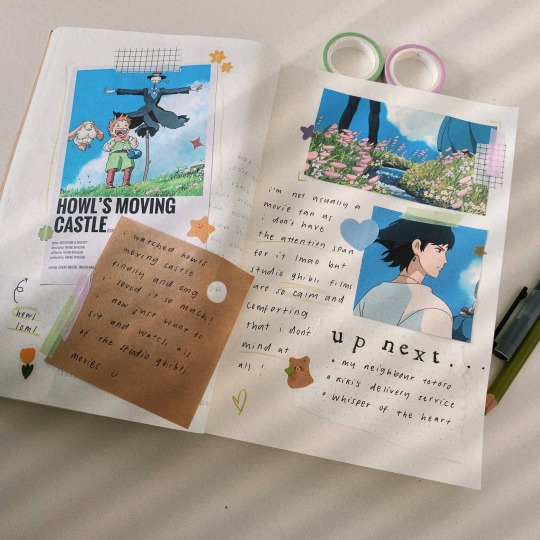 HOWL'S MOVING
CASTLE
i watched howls
moving castle
finally and omg
i loved it so much!
i now just want to
sit and watch all
of the studio ghibli
movies
howl
loml
i'm not usually a
movie fan as
i don't have
the attention span
for it lmao but
studio ghibli films
are so calm and
comforting
that i don't
mind at
all!
up next...
• my neighbour totoro
• kiki's delivery service
• whisper of the heart